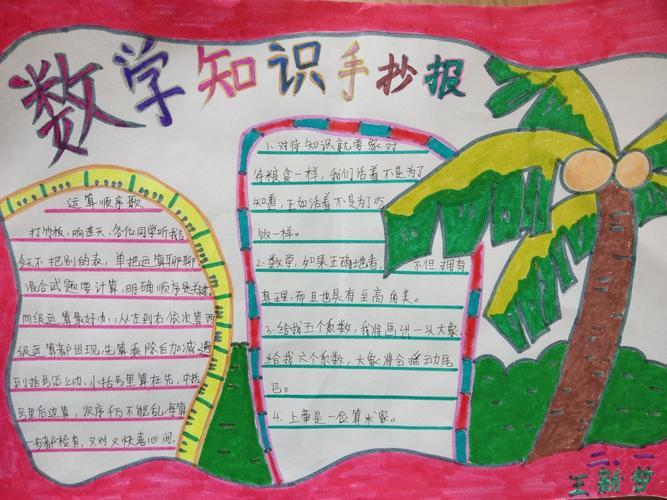 数学知识手抄报
运算顺序歌
打竹板,响连天,各位同学听我言
今天不把别的表,单把运算聊聊
混合试题要计算,明确顺序是关键
同级运算最好办,从左到右依次算两
级运算都出现,先算乘除后加减遇
到括号怎么办,小括号里算在先,中括
号里后边算,次序千万不能乱,每算
一步都检查,又对又快喜心间。
1.对待知识就要像对
待粮食一样,我们活着不是为了
知道,正如活着不是为了吃
饭一样。
2.数学,如果正确地看,不但拥有
真理,而且也具有至高的美。
3.给我五个系数,我将画出一头大象
给我六个系数,大象将会摇动尾
巴。
4.上帝是一位算术家。
二.一
王新哲